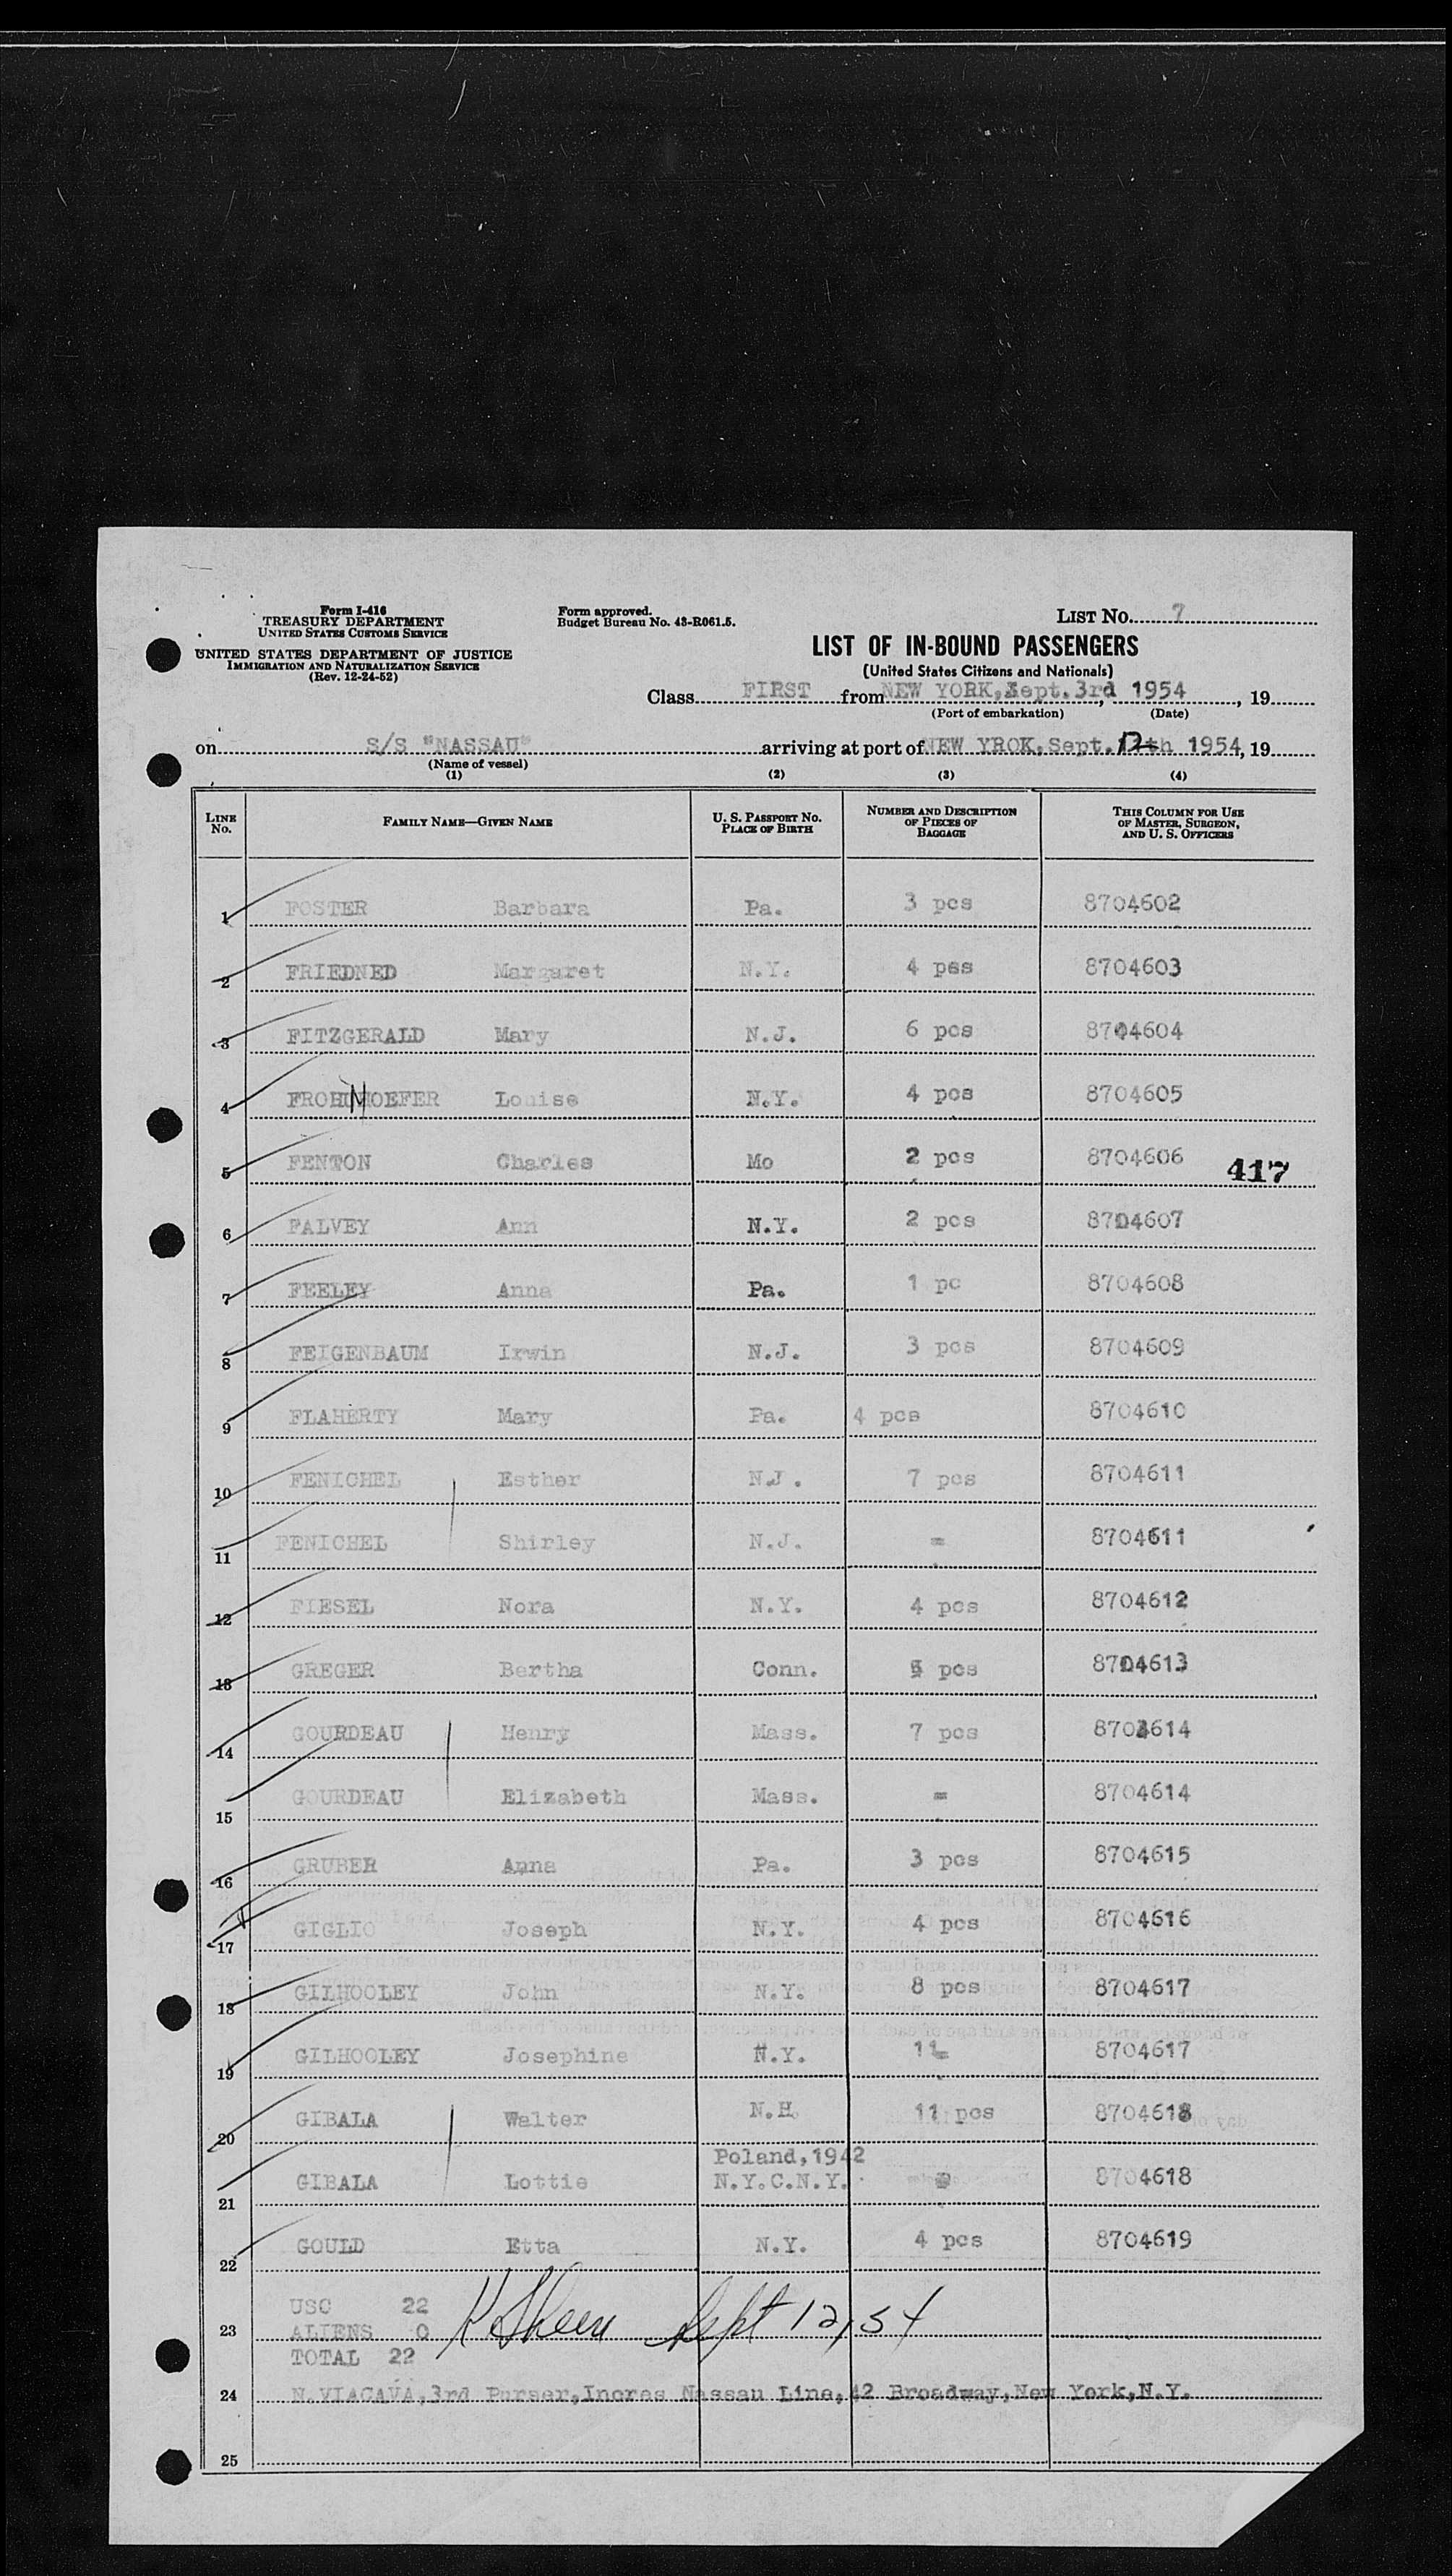 Form I-416
TREASURY DEPARTMENT
UNITED STATES CUSTOMS SERVICE
UNITED STATES DEPARTMENT OF JUSTICE
IMMIGRATION AND NATURALIZATION SERVICE
(Rev. 12-24-52)
Form approved.
Budget Bureau No. 43-R061.5.
LIST No. 7
LIST OF IN-BOUND PASSENGERS
(United States Citizens and Nationals)
Class FIRST from NEW YORK, Sept. 3rd, 1954, 19
(Port of embarkation) (Date)
on S/S "NASSAU" arriving at port of NEW YROK, Sept. 12th 1954, 19
(Name of vessel)
(1) (2) (3) (4)
LINE No. FAMILY NAME—GIVEN NAME U. S. PASSPORT No. PLACE OF BIRTH NUMBER AND DESCRIPTION OF PIECES OF BAGGAGE THIS COLUMN FOR USE OF MASTER, SURGEON, AND U. S. OFFICERS
1 FOSTER Barbara Pa. 3 pcs 8704602
2 FRIEDNED Margaret N.Y. 4 pss 8704603
3 FITZGERALD Mary N.J. 6 pcs 8704604
4 FROHNHOEFER Louise N.Y. 4 pcs 8704605
5 FENTON Charles Mo 2 pcs 8704606 417
6 FALVEY Ann N.Y. 2 pcs 8704607
7 FEELEY Anna Pa. 1 pc 8704608
8 FEIGENBAUM Irwin N.J. 3 pcs 8704609
9 FLAHERTY Mary Pa. 4 pcs 8704610
10 FENICHEL Esther N.J. 7 pcs 8704611
11 FENICHEL Shirley N.J. = 8704611
12 FIESEL Nora N.Y. 4 pcs 8704612
13 GREGER Bertha Conn. 5 pcs 8704613
14 GOURDEAU Henry Mass. 7 pcs 8704614
15 GOURDEAU Elizabeth Mass. = 8704614
16 GRUBER Anna Pa. 3 pcs 8704615
17 GIGLIO Joseph N.Y. 4 pcs 8704616
18 GILHOOLEY John N.Y. 8 pcs 8704617
19 GILHOOLEY Josephine N.Y. 8704617
20 GIBALA Walter N.H. 11 pcs 8704618
Poland,1942
21 GIBALA Lottie N.Y.C.N.Y. 8704618
22 GOULD Etta N.Y. 4 pcs 8704619
USC 22
23 ALIENS 0 Sept 12, 54
TOTAL 22
24 N.VIACAVA,3rd Purser,Incres Nassau Line,42 Broadway,New York,N.Y.
25